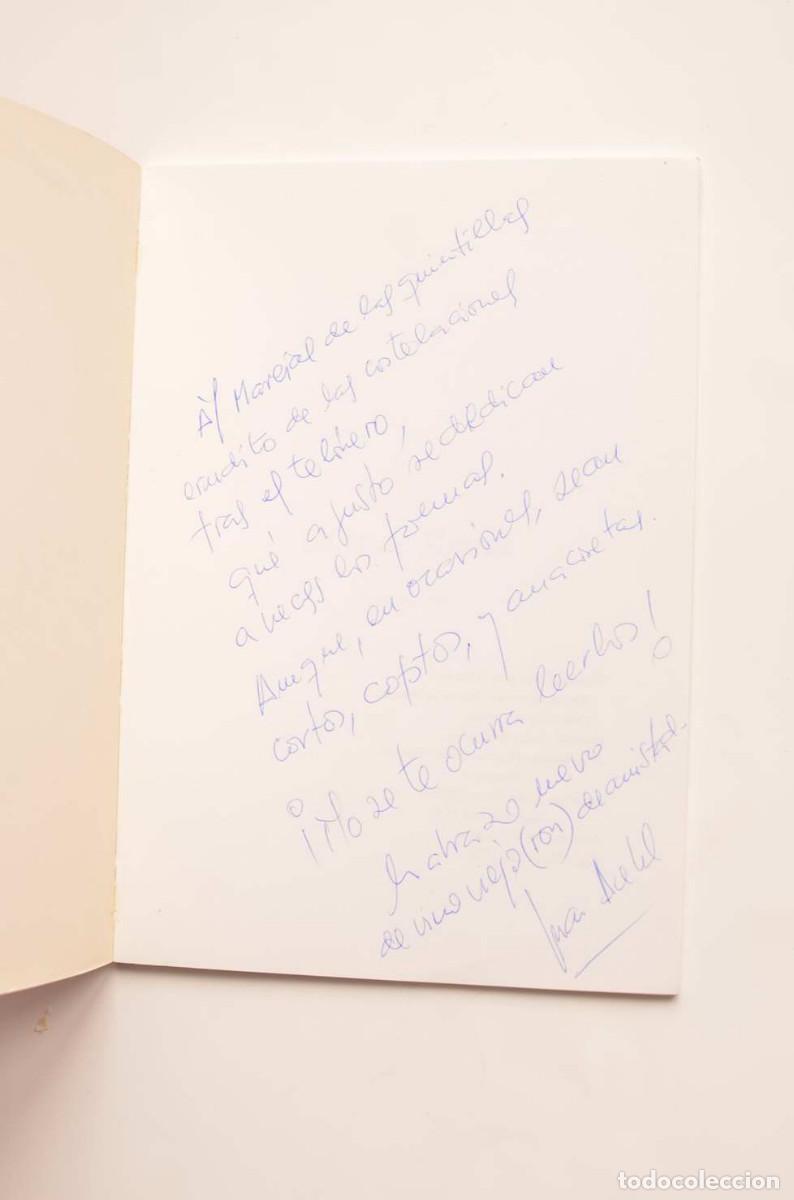 Al de las quintillas
erudito de las costelaciones
tras el telonero,
qué a gusto se dedican
a veces los poemas.
Aunque, en ocasiones, sean
cortos, coptos, y anacoretas.
¡No se te ocurra leerlos!
Un abrazo nuevo
de vino viejo(ron) de amistad.
Juan
todocoleccion